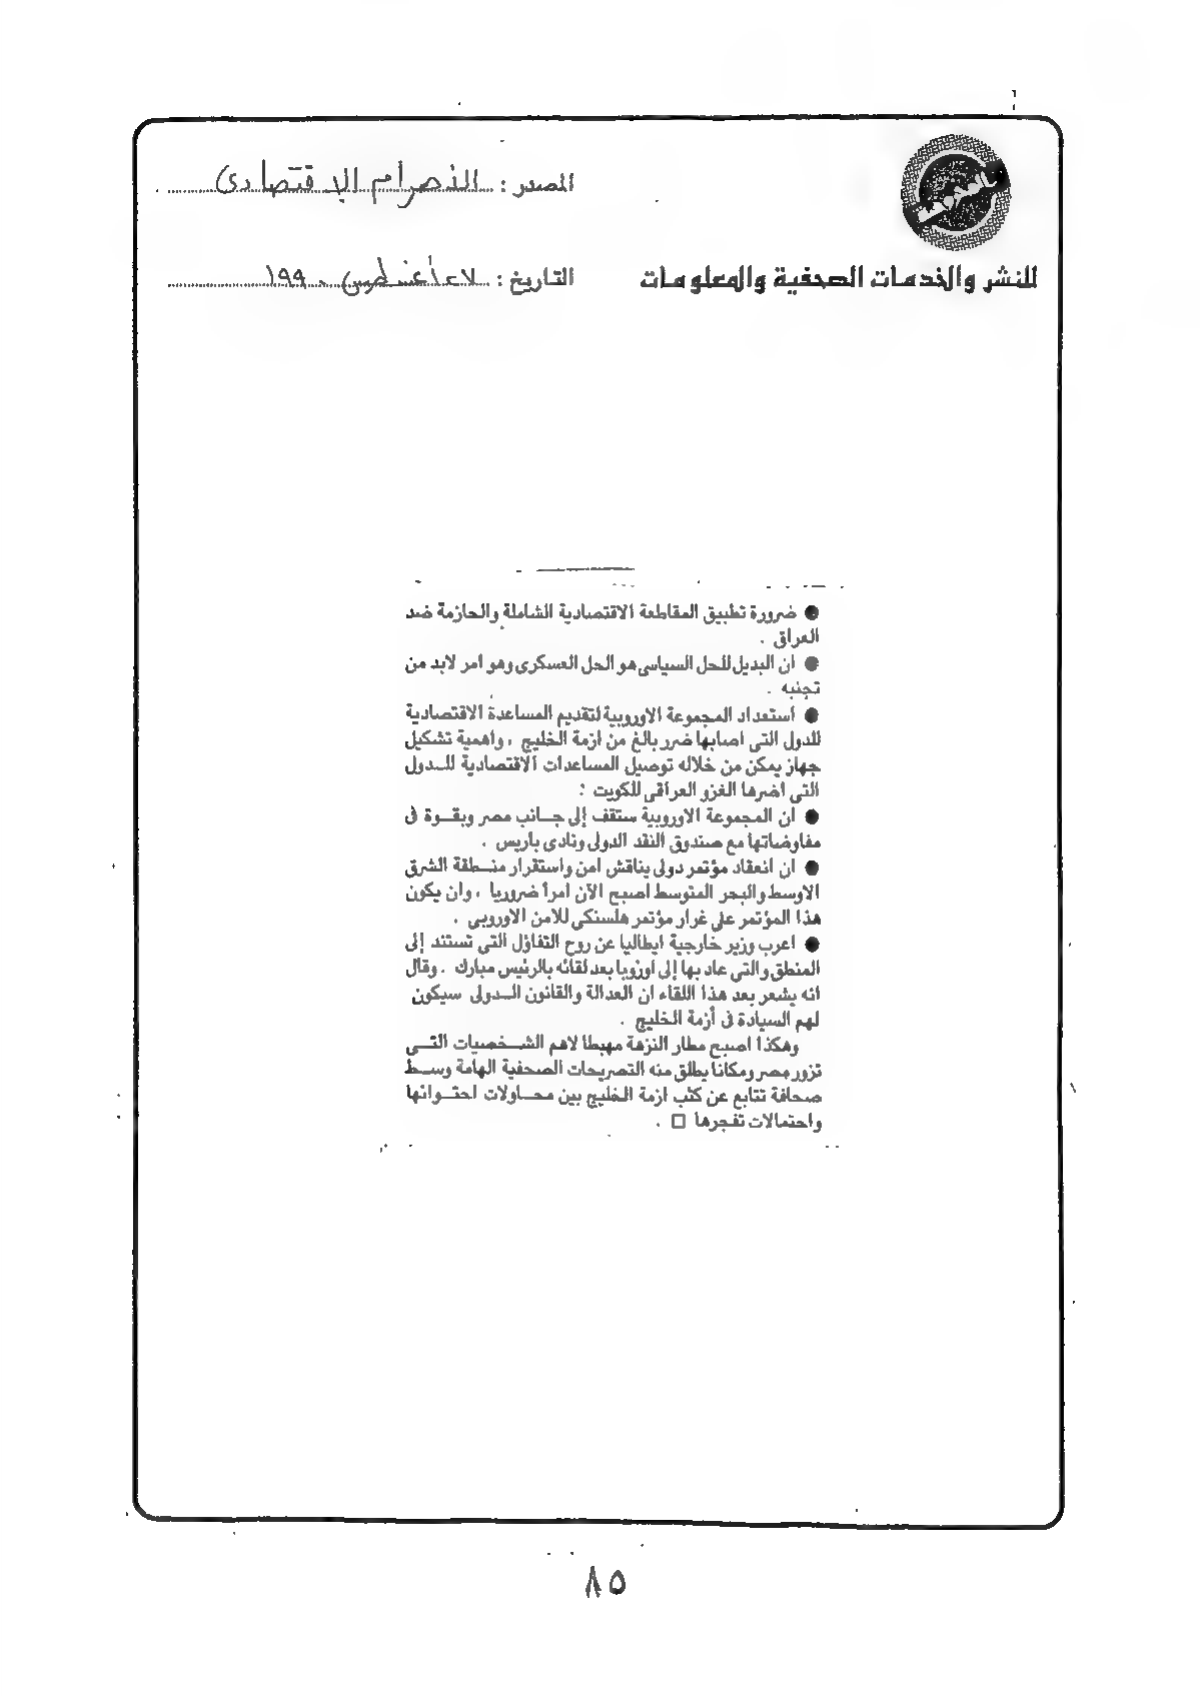 المصدر : الأهرام الإقتصادى
للنشر والخدمات الصحفية والمعلومات
التاريخ : أغسطس ١٩٩٠
● ضرورة تطبيق المقاطعة الاقتصادية الشاملة والحازمة ضد
العراق .
● ان البديل للحل السياسى هو الحل العسكرى وهو امر لابد من
تجنبه .
● استعداد المجموعة الاوروبية لتقديم المساعدة الاقتصادية
للدول التى اصابها ضرر بالغ من ازمة الخليج ، واهمية تشكيل
جهاز يمكن من خلاله توصيل المساعدات الاقتصادية للـدول
التى اضرها الغزو العراقى للكويت :
● ان المجموعة الاوروبية ستقف إلى جـانب مصر وبقـوة فى
مفاوضاتها مع صندوق النقد الدولى ونادى باريس .
● ان انعقاد مؤتمر دولى يناقش امن واستقرار منـطقة الشرق
الاوسط والبحر المتوسط اصبح الآن امرأ ضروريا ، وان يكون
هذا المؤتمر على غرار مؤتمر هلسنكى للامن الاوروبى .
● اعرب وزير خارجية ايطاليا عن روح التفاؤل التى تستند إلى
المنطق والتى عاد بها إلى اوروبا بعد لقائه بالرئيس مبارك . وقال
انه يشعر بعد هذا اللقاء ان العدالة والقانون الـدولى سيكون
لهم السيادة فى أزمة الخليج .
وهكذا اصبح مطار النزهة مهبطا لاهم الشـخصيات التـى
تزور مصر ومكانا يطلق منه التصريحات الصحفية الهامة وسـط
صحافة تتابع عن كثب ازمة الخليج بين محـاولات احتـوائها
واحتمالات تفجرها □ .
٨٥